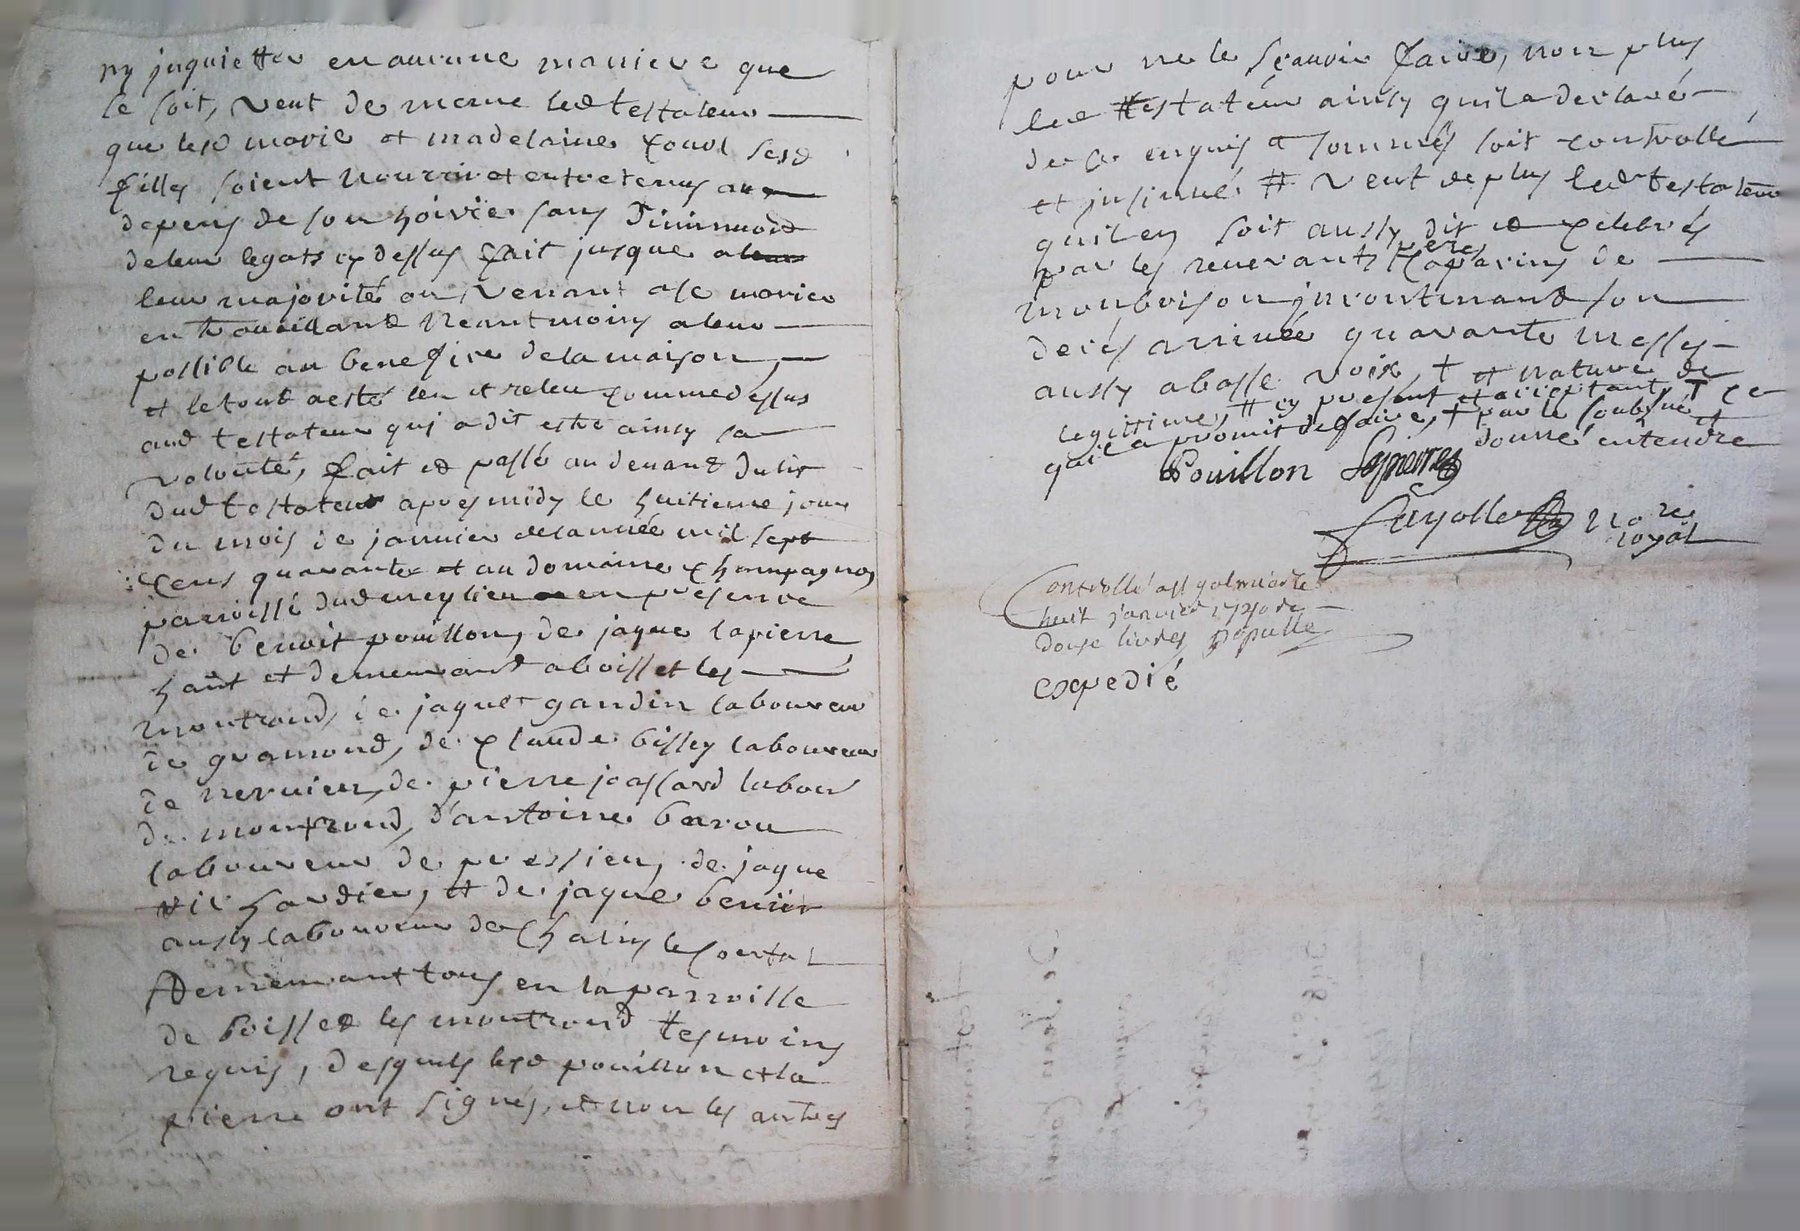 ny jnquietter en aucune maniere que
ce soit, veut de meme led testateur
que lesd marie et madelaine sesd
filles soient nourrir et entretenus aux
depens de son hoirie sans diminuõn
de leur legats cy dessus fait jusque a leur
leur majorité ou venant a se marier
en travaillant neantmoins a leur
possible au benefice de la maison,
et le tout a esté leu et releu comme dessus
aud testateur qui a dit estre ainsy sa
volonté, fait et passé au devant du lit
dud testateur apres midy le huitieme jour
du mois de janvier de l'année mil sept
cens quarante et au domaine champagnon
parroisse dud meylieu en presence
de benoit pouillon, de jaque lapierre
hant et demeurant a boisset les
montrond, de jaque gandin laboureur
de gramond, de claude bissey laboureur
de nervieu, de pierre joassard labour
de montrond, d'antoine barou
laboureur de pressieu, de jaque
richardier, et de jaque benier
aussy laboureur de chalin le contal
demeurant tous en la parroisse
de boisset les montrond tesmoins
requis, desquels lesd pouillon et la
pierre ont signés, et non les autres
pour ne le scavoir faire, non plus
led testateur ainsy quil a declaré
de ce enquis et sommés soit controllé
et jnsinué. # veut de plus led testateur
quil en soit aussy dit et celebrés
par les reverants peres capucins de
monbrison jncontinant son
decés arrivée quarante messes
aussy a basse voix, † et nature de
legitime, # cy present et acceptant, † ce
quil a promit de faire, † par le soubsné
donné entendre
Pouillon Lapierre
Fayolle no.re
royal
Controllé a st galmier le
huit janvier 1740 re
douse livres
expedié